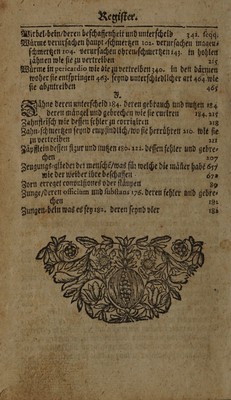 Register.
Wirbel-bein/deren beschaffenheit und unterscheid 342. seqq.
Würme verursachen haupt-schmertzen 102. verursachen magen-
schmertzen 104. verursachen ohren schmertzen 143. in holen
zähnen wie sie zu vertreiben 215
Würme in pericardio wie sie zu vertreiben 340. in den därmen
woher sie entspringen 463. seynd unterschiedlicher art 464 wie
sie abzutreiben 465
Z.
Zähne deren unterscheid 184. deren gebrauch und nutzen 184
deren mängel und gebrechen wie sie curiren 184. 215
Zahnfleisch wie dessen fehler zu corrigiren 218
Zahn-schmertzen seynd empfindlich/wo sie herrühren 210. wie sie
zu vertreiben 211
Zäpfflein dessen figur und nutzen 180. 221. dessen fehler und gebre-
chen 207
Zeugungs-glieder bei mensche/was für welche die mäñer habē 657
wie der weiber ihre beschaffen 670
Zorn erreget commotiones oder stämpen 89
Zunge/derer officium und substantz 176. deren fehler und gebre-
chen 191
Zungen-bein was es sey 182. deren seynd vier 182